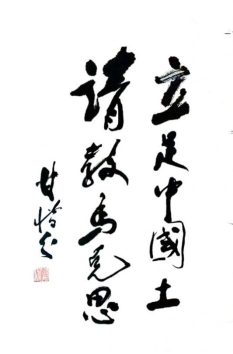 立足中國土
請教馬克思
甘惜分